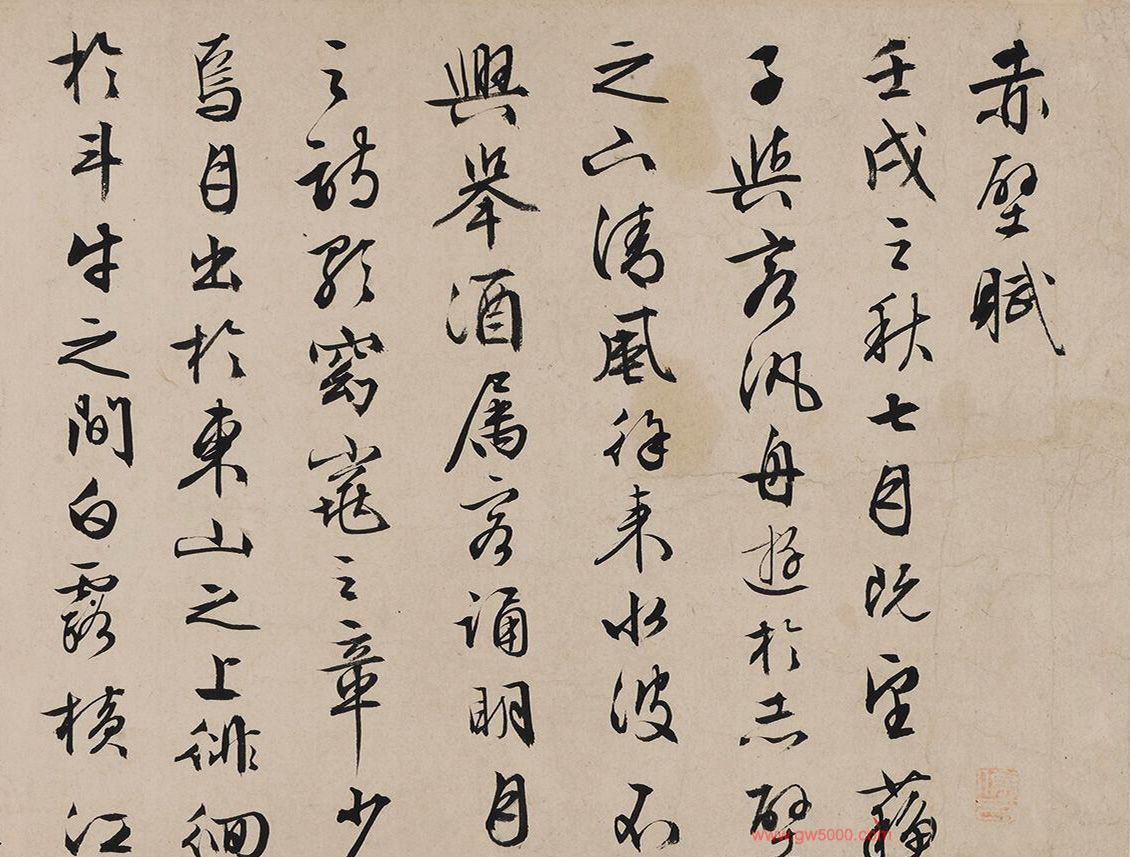 赤壁賦
壬戌之秋七月既望蘇
子與客汎舟遊於赤壁
之下清風徐來水波不
興舉酒屬客誦明月
之詩歌窈窕之章少
焉月出於東山之上徘徊
於斗牛之間白露橫江
www.gw5000.com